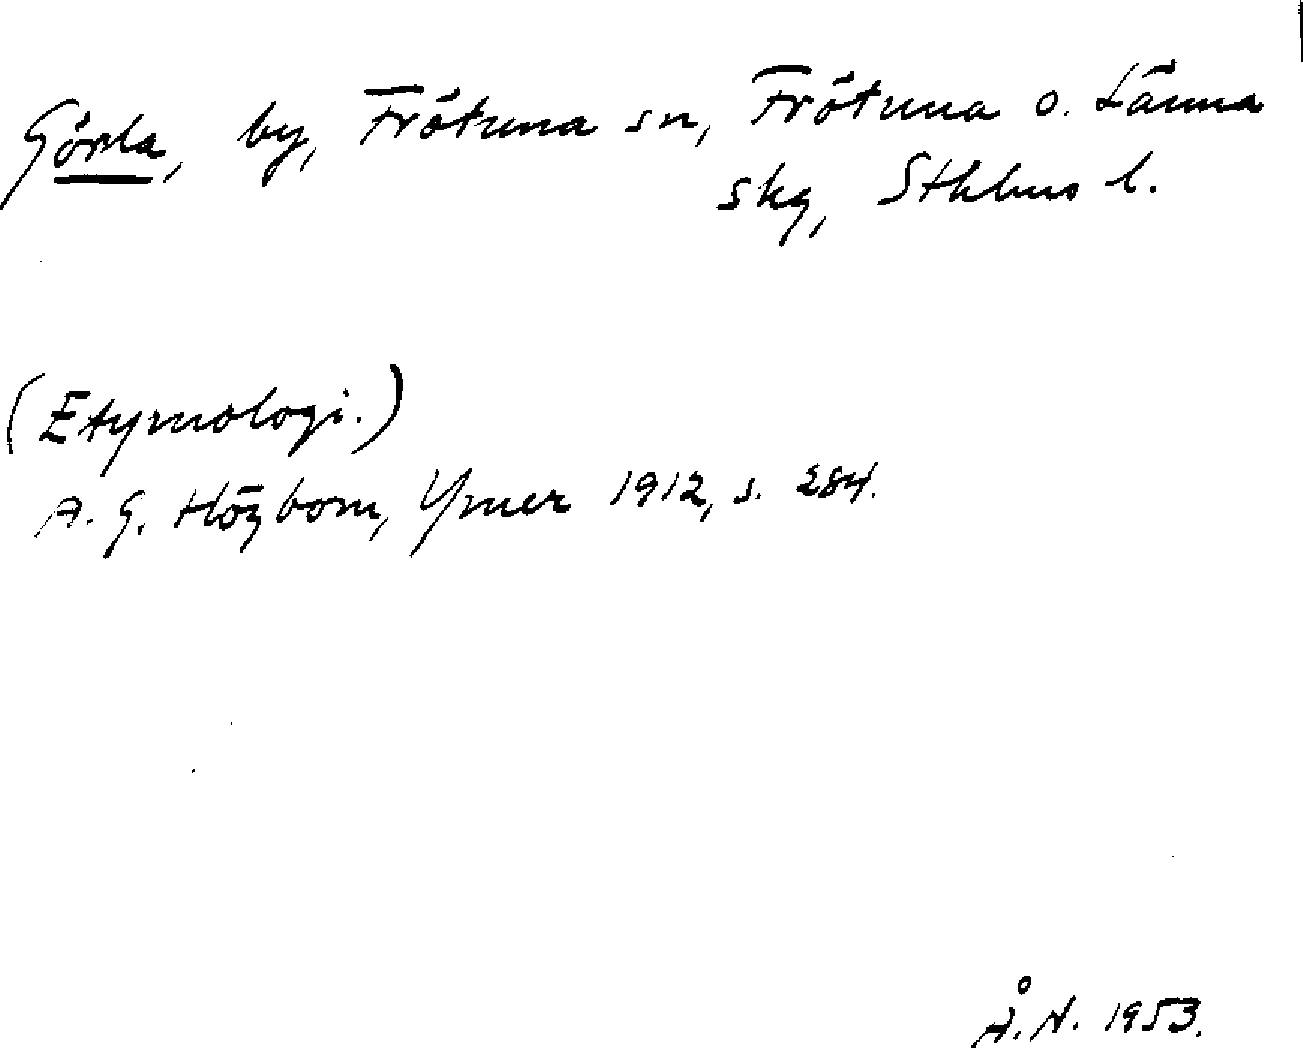 Görla, by, Frötuna sn, Frötuna o. Länna
skg, Sthlms l.
(Etymologi.)
A. G. Högbom, Ymer 1912, s. 284.
Å. N. 1953.